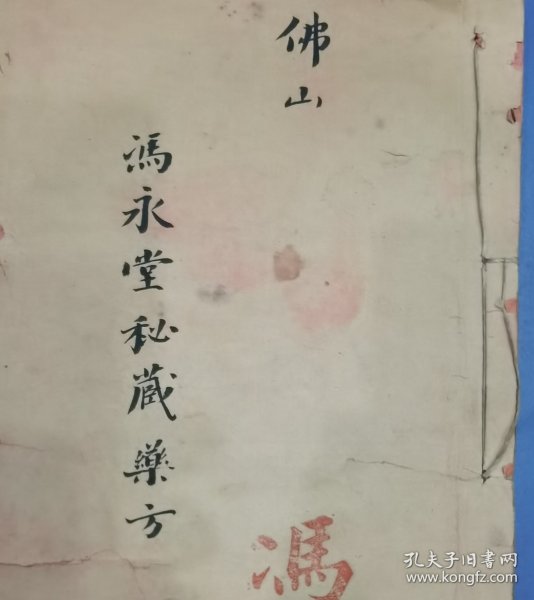 佛山
馮永堂秘藏藥方
馮
孔夫子旧书网
www.kongfz.com